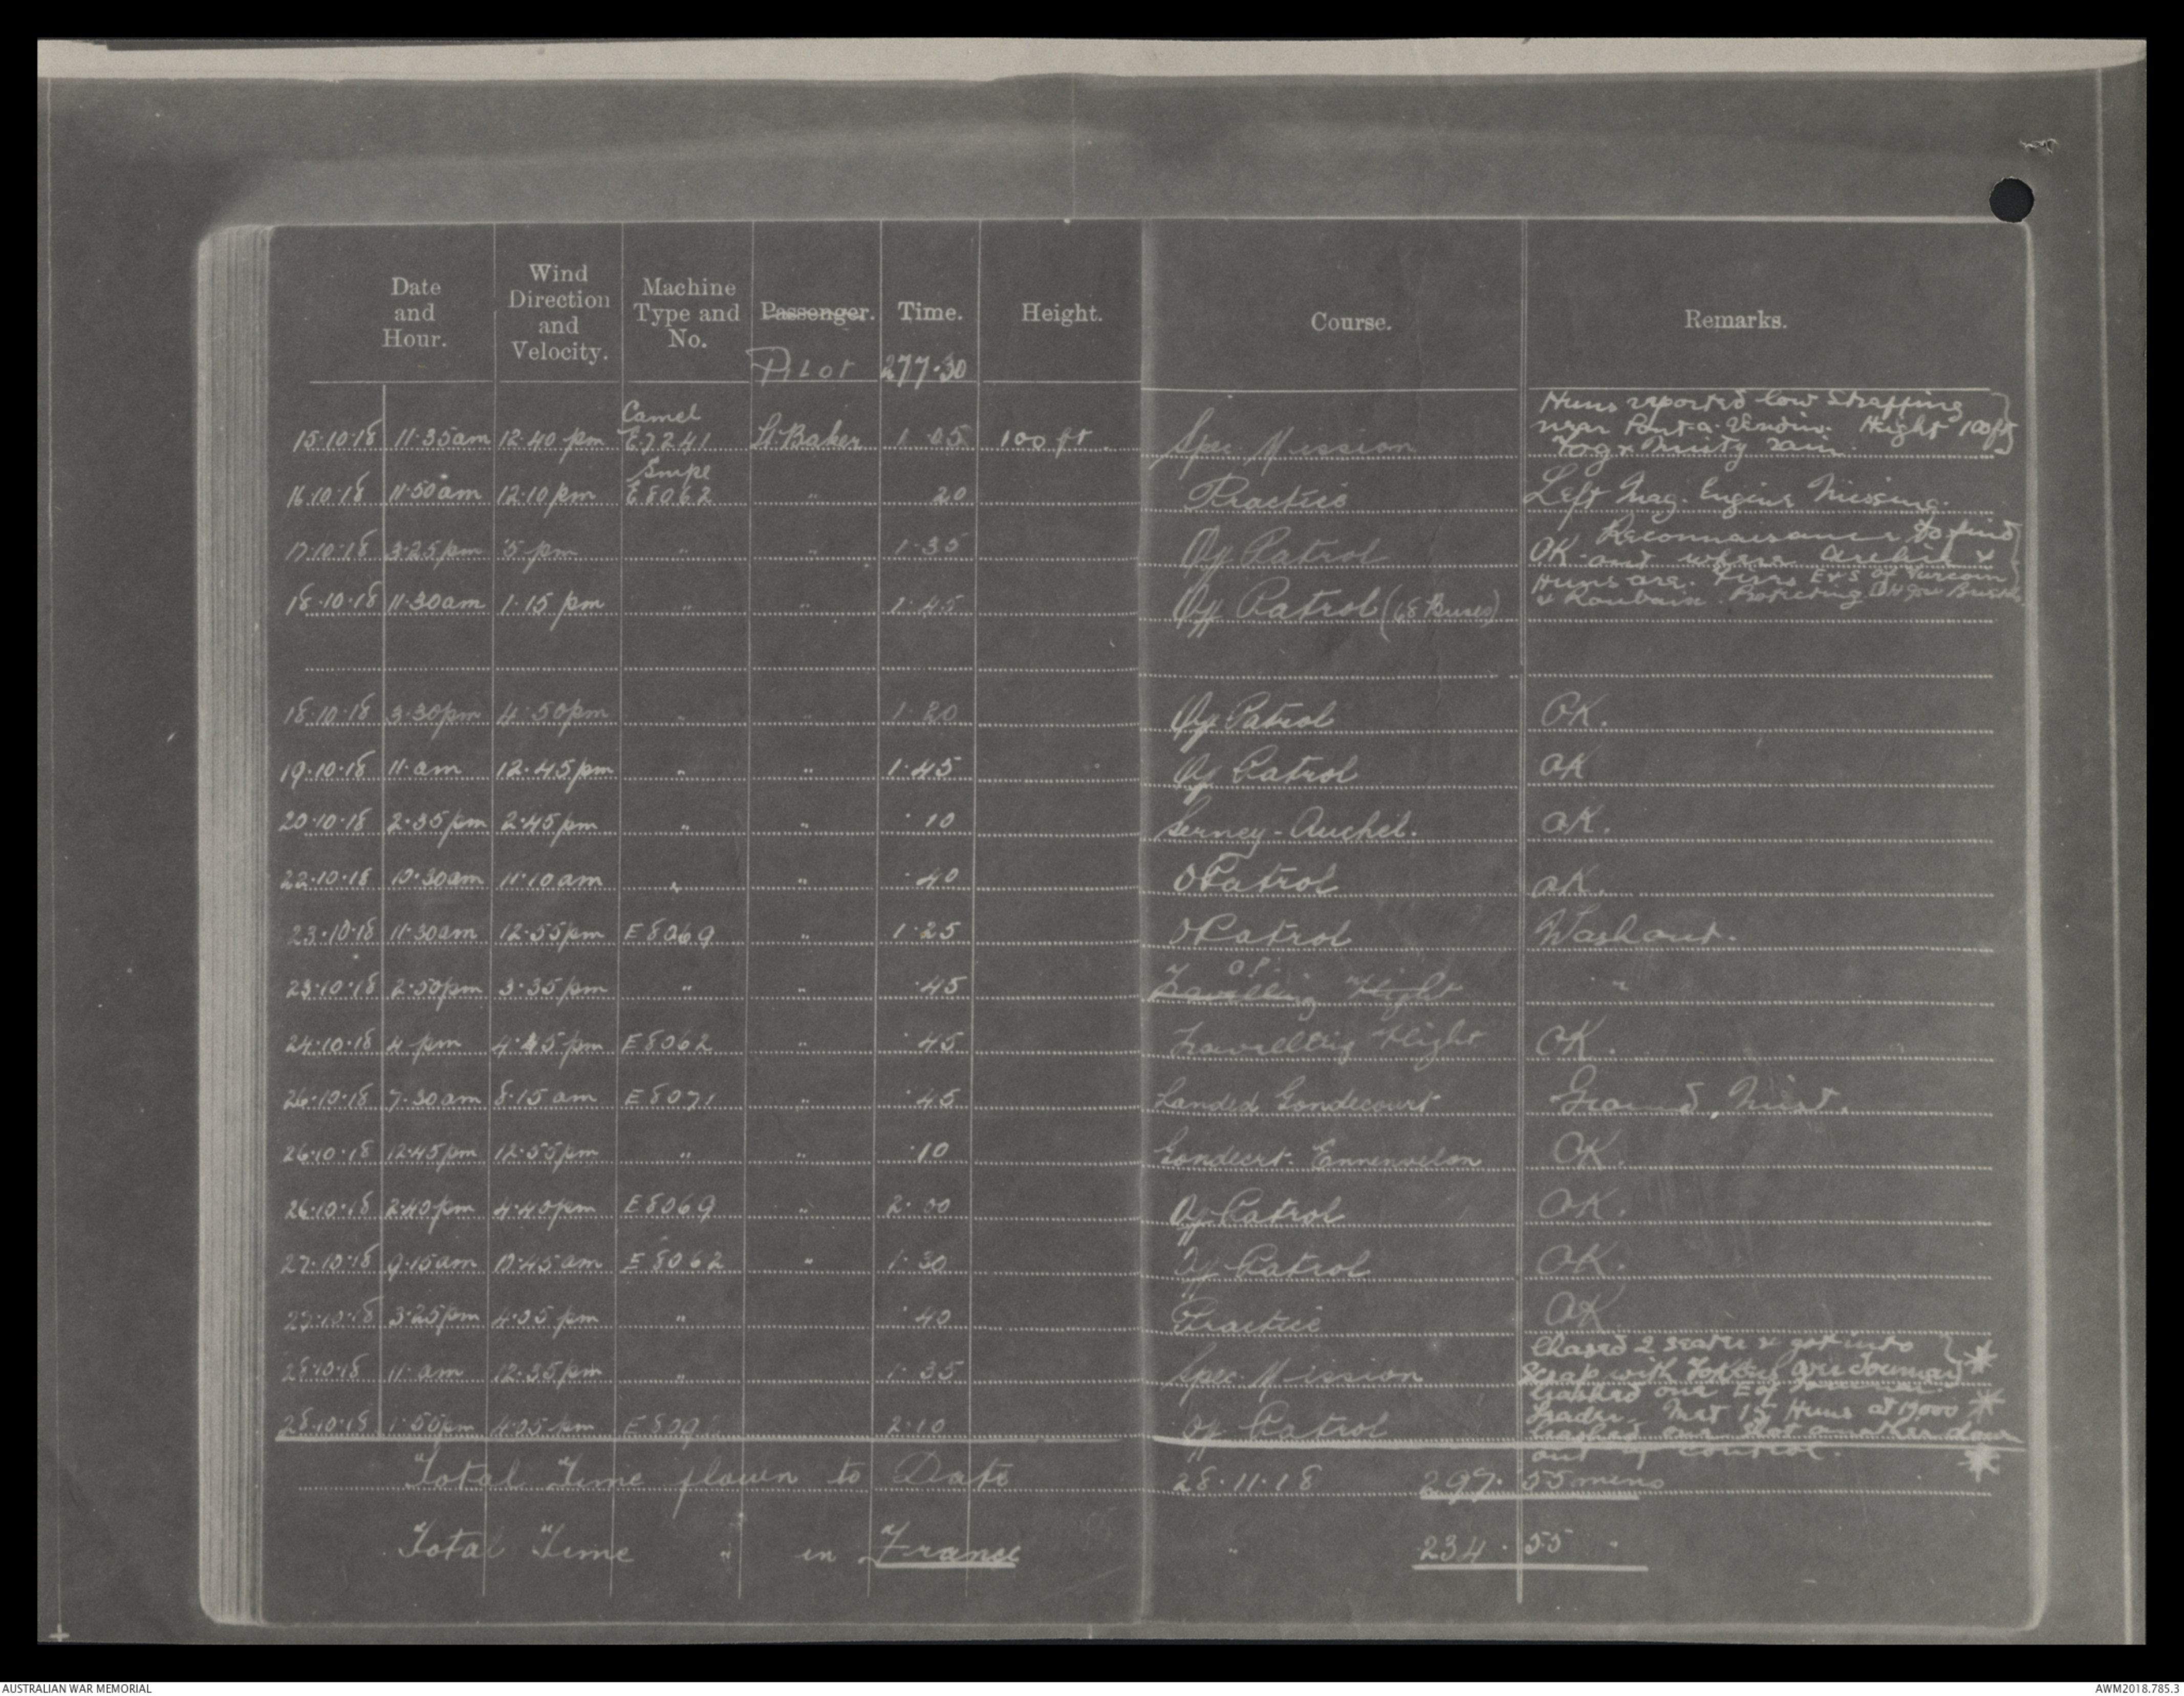 Date and Hour. Wind Direction and Velocity. Machine Type and No. Passenger. Time. Height. Course. Remarks.
Pilot 277.30
Huns reported low Straffing
near Pont-a-Vendin. Height 100ft
Fog & Misty rain.
15.10.18 11.35am 12.40 pm Camel E7241 Lt. Baker 1.05 100 ft Spec. Mission
16.10.18 11.50am 12.10pm Snipe E8062 " 20 Practice Left Mag. Engine Missing.
17.10.18 3.25pm 5 pm " " 1.35 Off Patrol OK
Reconnaisance to find
out where Archies &
Huns are.
18.10.18 11.30am 1.15 pm " " 1.45 Off Patrol (68 Buses)
Fires E & S of Turcoin
& Roubaix. Protecting
18.10.18 3.30pm 4.50pm " " 1.20 Off Patrol OK.
19.10.18 11.am 12.45pm " " 1.45 Off Patrol OK
20.10.18 2.35pm 2.45pm " " .10 Serney-Auchel. OK.
22.10.18 10.30am 11.10am " " .40 O Patrol OK.
23.10.18 11.30am 12.55pm E8069 " 1.25 O Patrol Washout.
23.10.18 2.50pm 3.35pm " " .45 Travelling Flight O.P. "
24.10.18 4 pm 4.45pm E8062 " .45 Travelling Flight OK.
26.10.18 7.30am 8.15 am E8071 " .45 Landed Gondecourt Ground Mist.
26.10.18 12.45pm 12.55pm " " .10 Gondecrt. Ennevelon OK.
26.10.18 2.40pm 4.40pm E8069 " 2.00 Off Patrol OK.
27.10.18 9.15am 10.45am E8062 " 1.30 Off Patrol OK.
27.10.18 3.25pm 4.05pm " .40 Practice OK
28.10.18 11.am 12.35pm " 1.35 Spec. Mission
Chased 2 seater & got into
Scrap with Fokkers over Tournai
Crashed one E of Tournai.
28.10.18 1.50pm 4.05pm 2.10 Off Patrol
Leader. Met 15 Huns at 19,000
Crashed one Shot another down
out of control.
Total Time flown to Date 28.11.18 297.55 mins
Total Time " in France " 234.55 "
AUSTRALIAN WAR MEMORIAL AWM2018.785.3